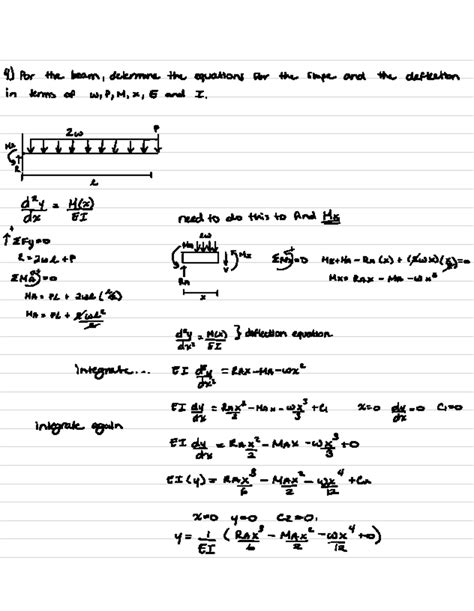 9) For the beam, determine the equations for the slope and the deflection
in terms of w, P, M, x, E and I.
2w P
MA
R
l
d²y/dx = M(x)/EI
need to do this to find Mx
↑+ ΣFy=0
R=2wl+P
ΣMA=0
MA = PL + 2wl(l/2)
2w
MA
Mx
V
RA
x
ΣM=0 Mx+MA-RA(x)+(2wx)(x/2)=0
Mx = RAx - MA - wx²
d²y/dx² = M(x)/EI } deflection equation
Integrate... EI d²y/dx² = RAx-MA-wx²
EI dy/dx = RAx²/2 - MAx - wx³/3 + C1 x=0 dy/dx=0 C1=0
Integrate again
EI dy/dx = RAx²/2 - MAx - wx³/3 + 0
EI(y) = RAx³/6 - MAx²/2 - wx⁴/12 + C2
x=0 y=0 C2=0
y = 1/EI (RAx³/6 - MAx²/2 - wx⁴/12 + 0)